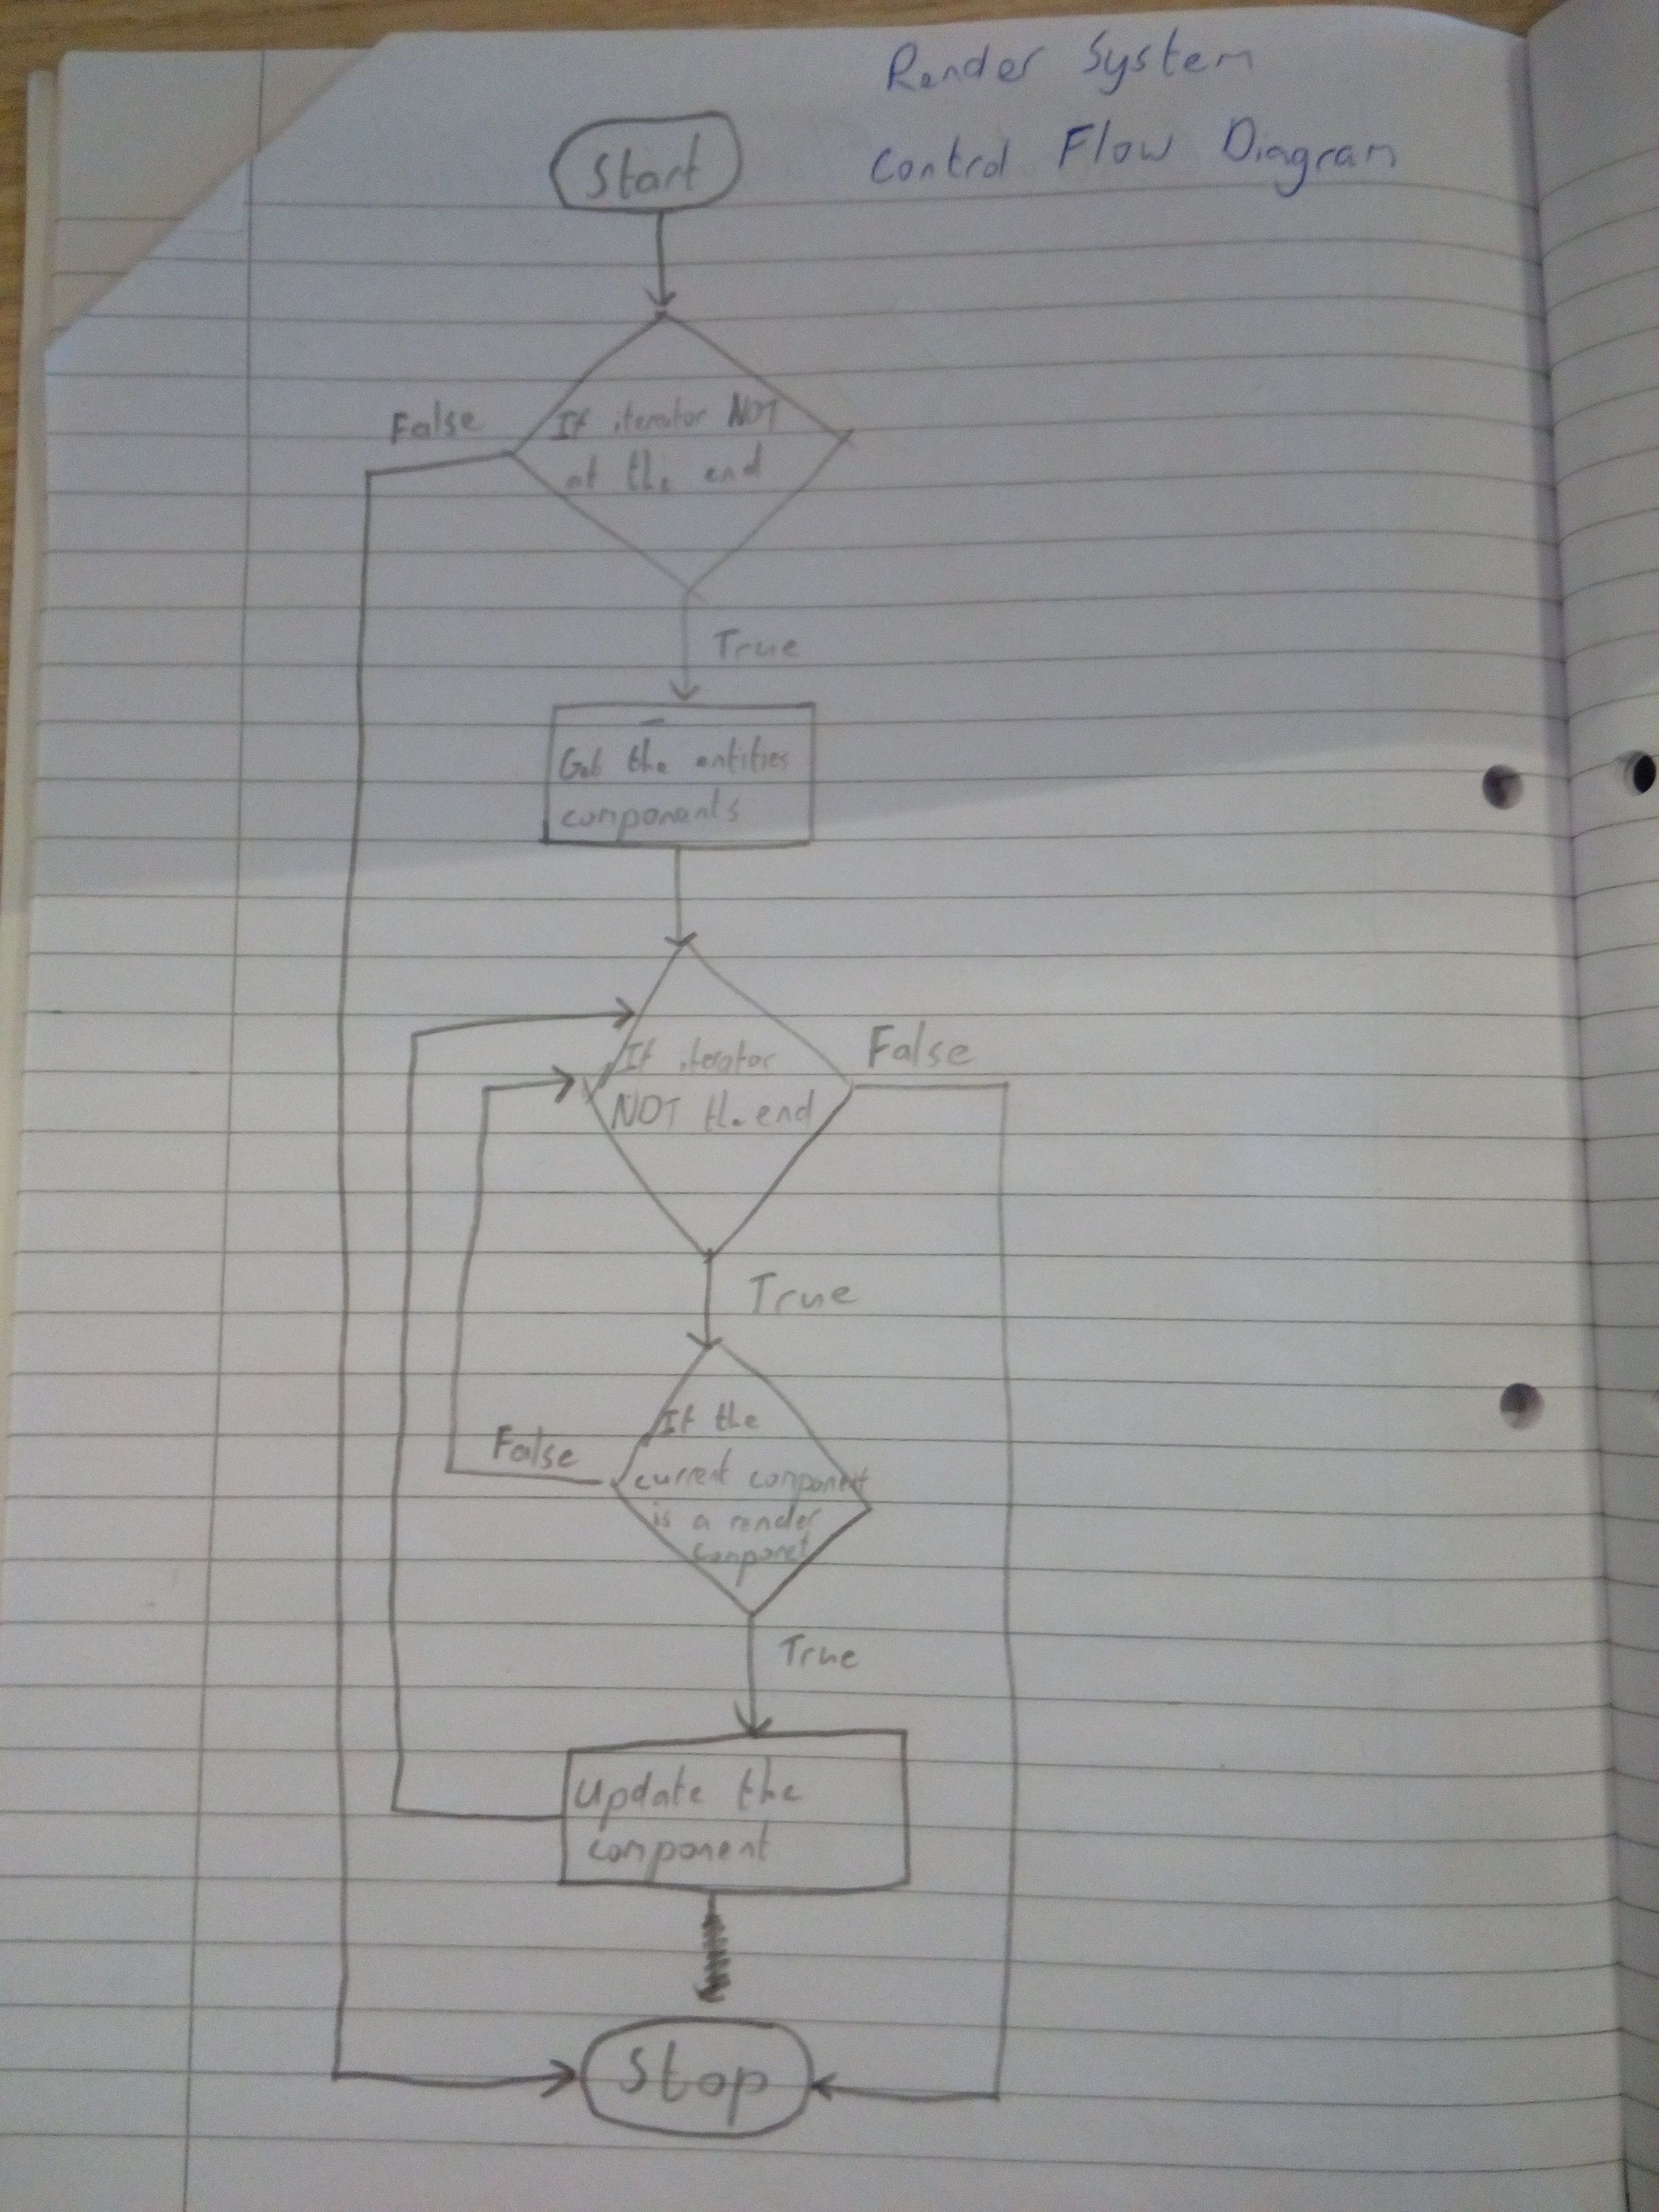 Render System
Control Flow Diagram
Start
If iterator NOT
at the end
False
True
Get the entities
components
If iterator
NOT the end
False
True
If the
current component
is a render
componet
False
True
Update the
component
Stop